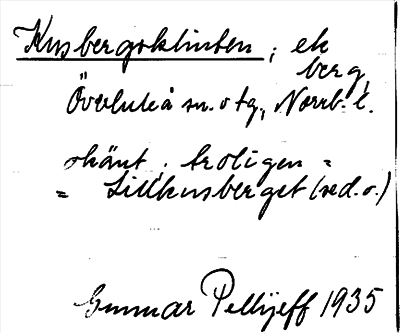 Kusbergsklinten, ek
berg,
Överluleå sn. o tg, Norrb. l.
okänt; troligen =
= Lillkusberget (red. o.)
Gunnar Pellijeff 1935